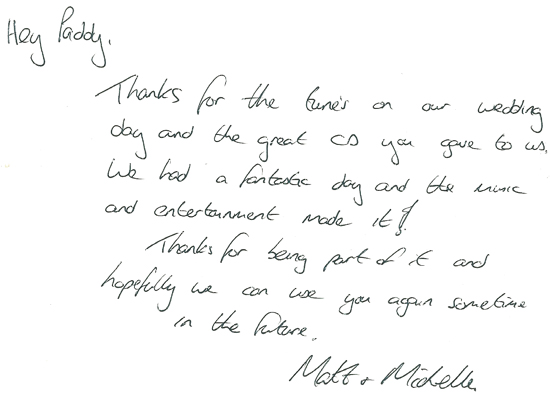 Hey Paddy,
Thanks for the tune's on our wedding
day and the great CD you gave to us.
We had a fantastic day and the music
and entertainment made it!
Thanks for being part of it and
hopefully we can use you again sometime
in the future.
Matt + Michelle